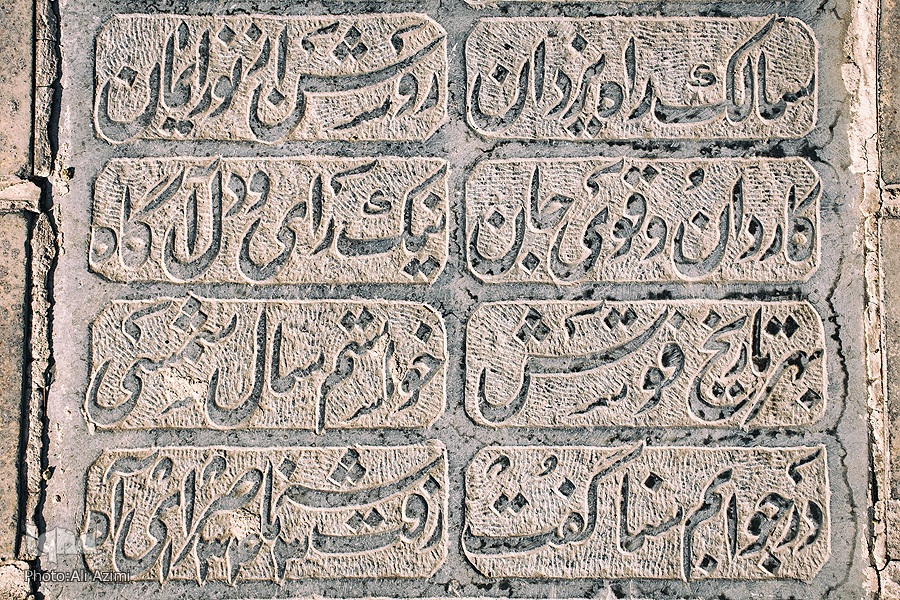 سالک راه یزدان
روشن از نور ایمان
کاردان و قوی جان
نیک رای و دل آگاه
بهر تاریخ فوتش
خواستم سال شمسی
در جوابم سنا گفت
رفت ای آه
Photo:Ali Azimi